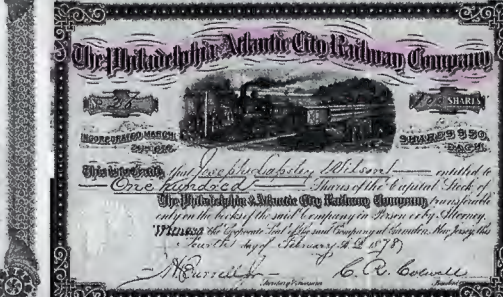 The Philadelphia & Atlantic City Railway Company
No. 26
100 SHARES
INCORPORATED MARCH
SHARES $50
EACH
This is to Certify that Joseph Lapsley Wilson entitled to
One hundred Shares of the Capital Stock of
The Philadelphia & Atlantic City Railway Company transferable
only on the books of the said Company in Person or by Attorney.
Witness the Corporate Seal of the said Company at Camden, New Jersey, this
Fourth day of February A.D. 1878
Secretary & Treasurer
President